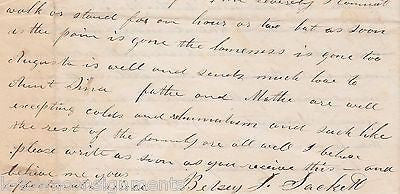 walk or stand for an hour or two but as soon
as the pain is gone the lameness is gone too
Augusta is well and sends much love to
Aunt Dina father and Mother are well
excepting colds and rheumatism and such like
the rest of the family are all well I believe
please write as soon as you receive this - and
believe me yours Betsey J. Sackett